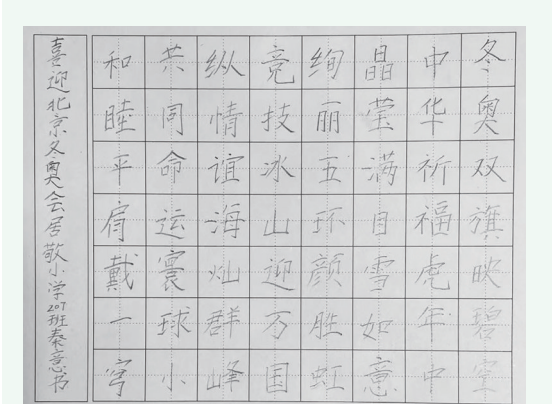 冬奥双旗映碧空
中华祈福虎年中
晶莹满目雪如意
绚丽五环颜胜虹
竞技冰山迎万国
纵情谊海灿群峰
共同命运寰球小
和睦平肩戴一穹
喜迎北京冬奥会居敬小学207班秦意书